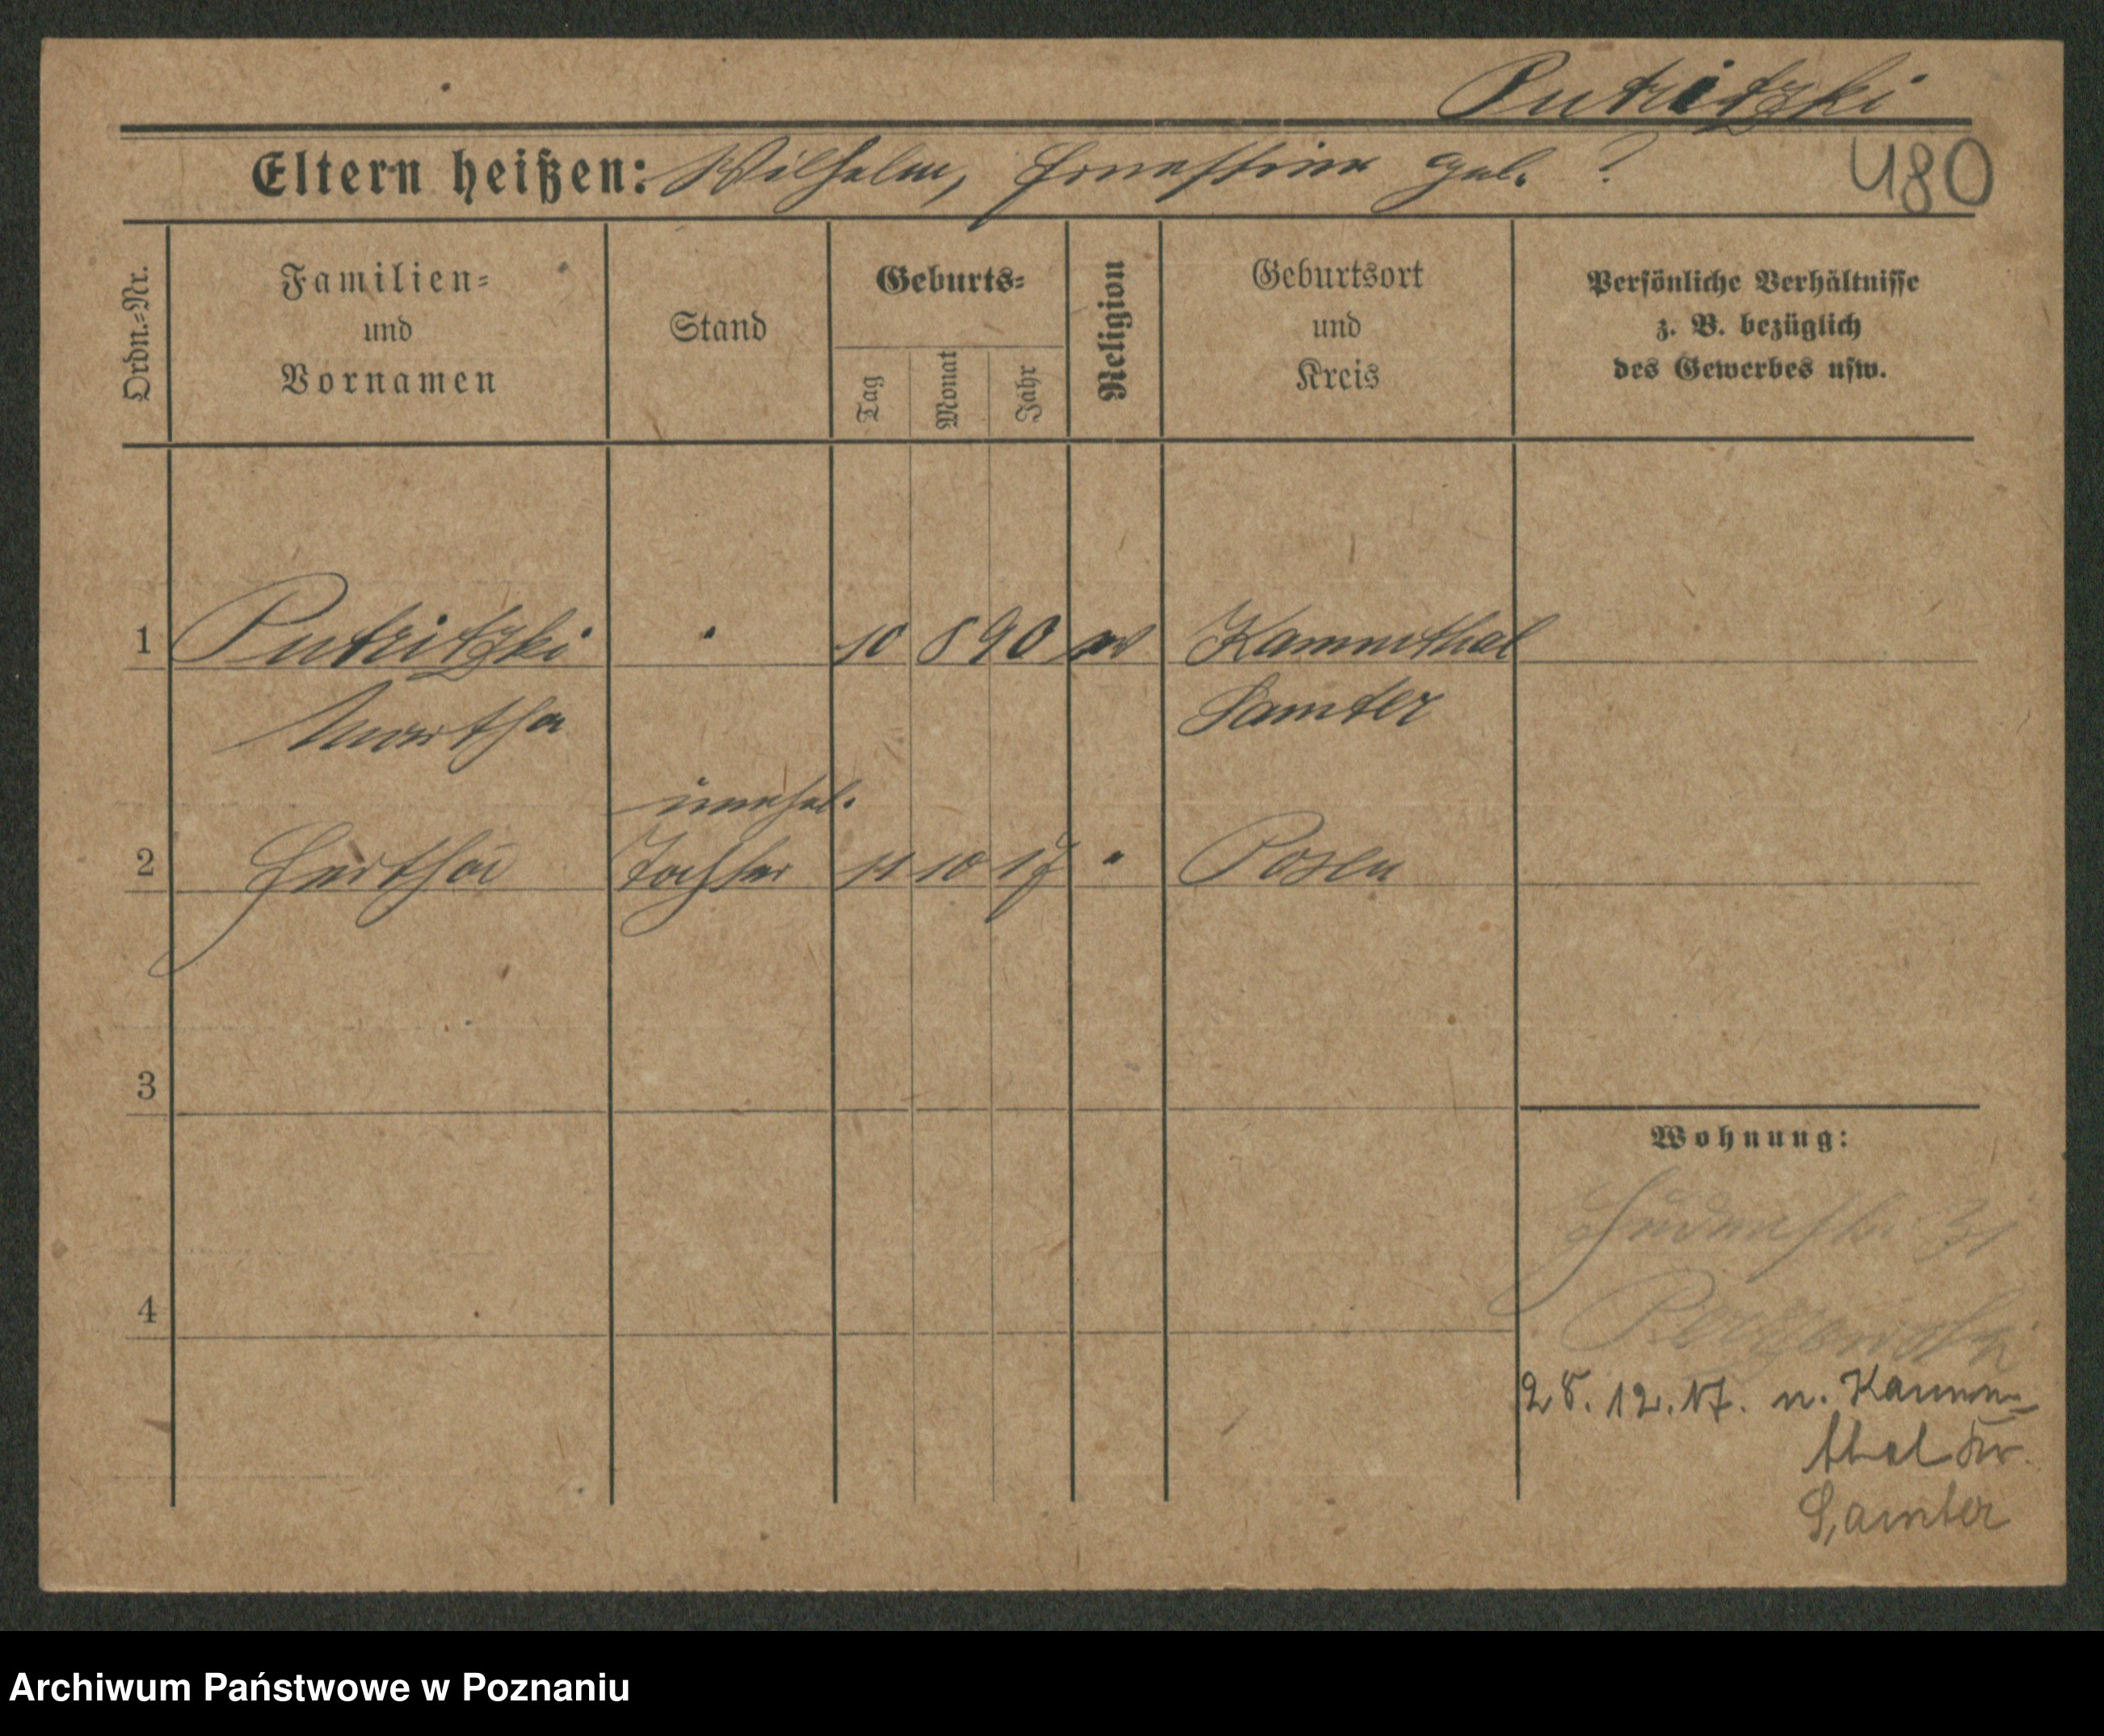 Putritzki
Eltern heißen: Wilhelm, Ernestine geb. ?
480
Ordn.-Nr.
Familien-
und
Vornamen
Stand
Geburts-
Tag
Monat
Jahr
Religion
Geburtsort
und
Kreis
Persönliche Verhältnisse
z. B. bezüglich
des Gewerbes usw.
1 Putritzki 10 8 90 Kammthal
Martha Samter
unehel.
2 Hertha Tochter 11 10 17 " Posen
3
Wohnung:
31
4
28. 12. 17. n. Kamm-
thal Kr.
Samter
Archiwum Państwowe w Poznaniu